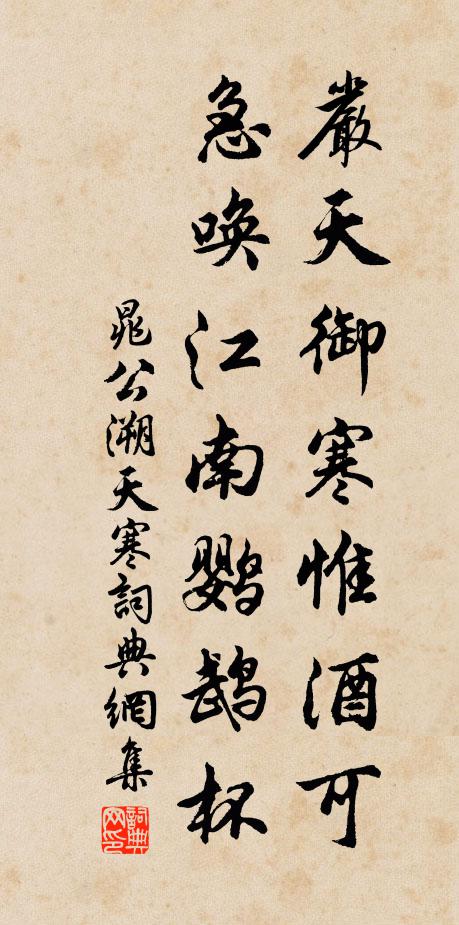 嚴天御寒惟酒可
急喚江南鸚鵡杯
晁公溯天寒詞典網集
詞典网印